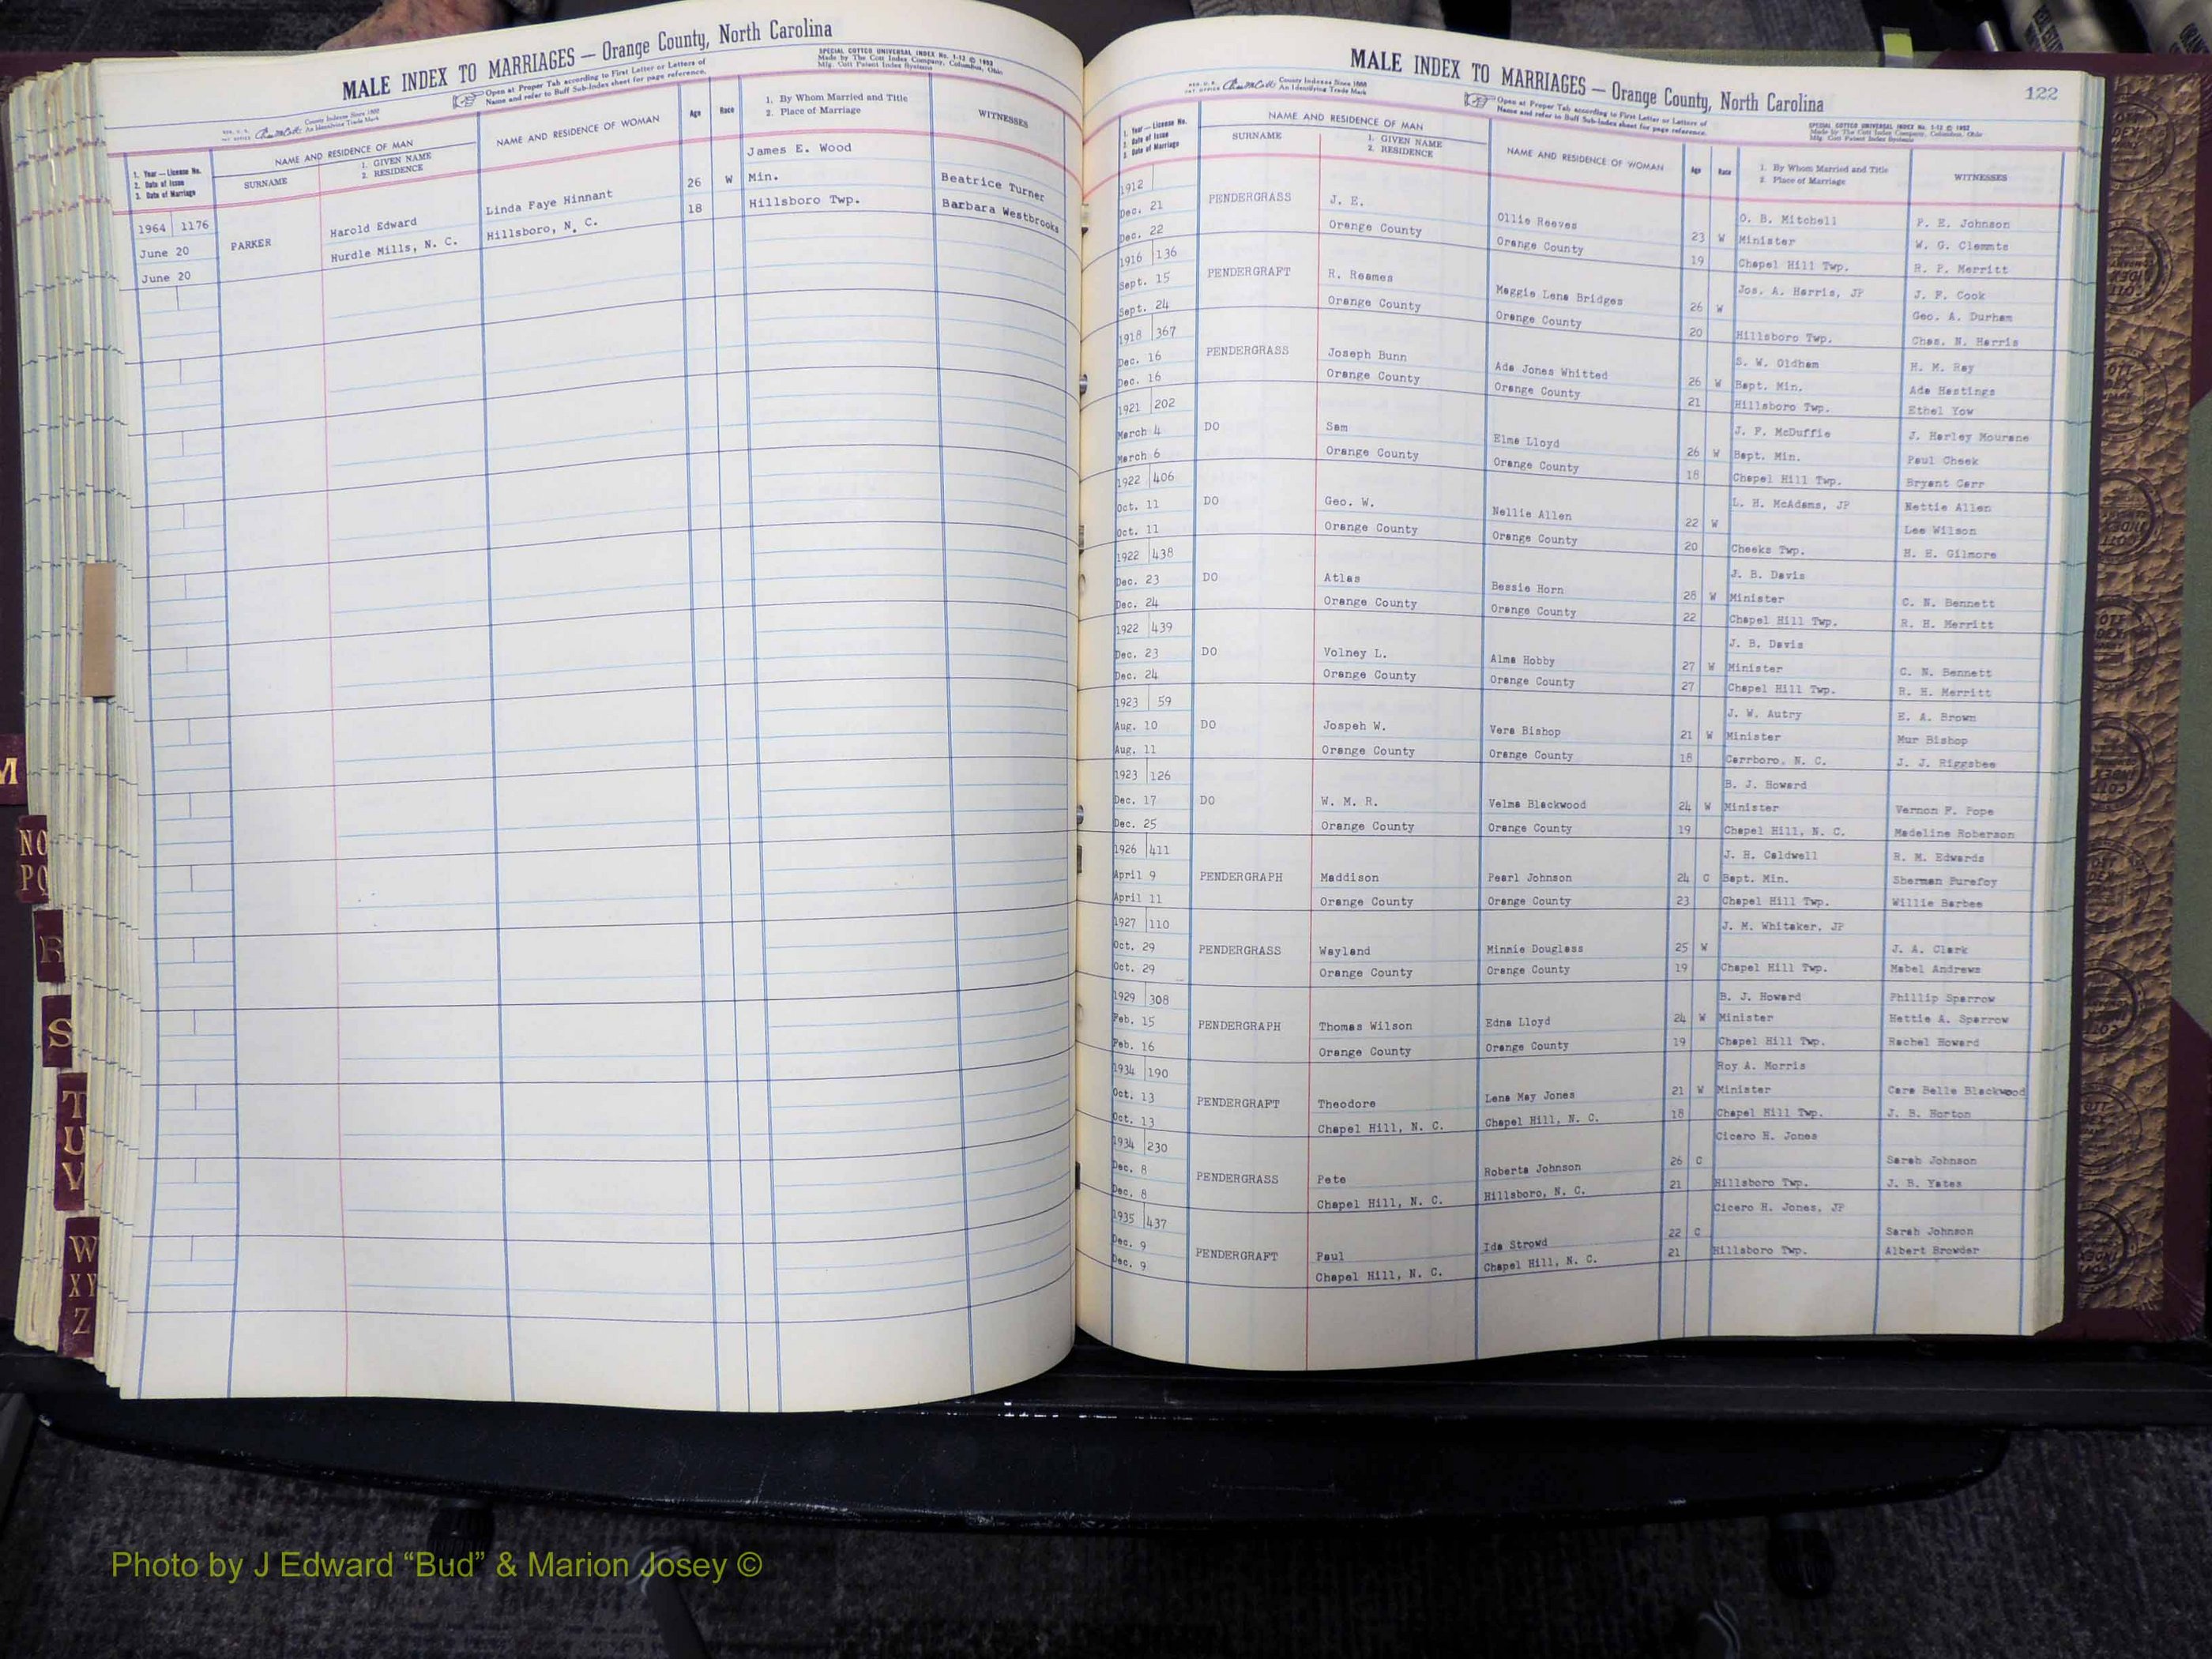 MALE INDEX TO MARRIAGES — Orange County, North Carolina
Open at Proper Tab according to First Letter or Letters of
Name and refer to Buff Sub-Index sheet for page reference.
SPECIAL COTTCO UNIVERSAL INDEX No. 1-12 © 1952
Made by The Cott Index Company, Columbus, Ohio
Mfg. Cott Patent Index Systems
County Indexes Since 1888
An Identifying Trade Mark
1. Year — License No.
2. Date of Issue
3. Date of Marriage
NAME AND RESIDENCE OF MAN
SURNAME
1. GIVEN NAME
2. RESIDENCE
NAME AND RESIDENCE OF WOMAN
Age
Race
1. By Whom Married and Title
2. Place of Marriage
WITNESSES
James E. Wood
1964 1176 Harold Edward Linda Faye Hinnant 26 W Min. Beatrice Turner
June 20 PARKER Hurdle Mills, N. C. Hillsboro, N. C. 18 Hillsboro Twp. Barbara Westbrooks
June 20
M
NO
PQ
R
S
T
U
V
W
XY
Z
MALE INDEX TO MARRIAGES — Orange County, North Carolina
122
County Indexes Since 1888
An Identifying Trade Mark
Open at Proper Tab according to First Letter or Letters of
Name and refer to Buff Sub-Index sheet for page reference.
SPECIAL COTTCO UNIVERSAL INDEX No. 1-12 © 1952
Made by The Cott Index Company, Columbus, Ohio
Mfg. Cott Patent Index Systems
1. Year — License No.
2. Date of Issue
3. Date of Marriage
NAME AND RESIDENCE OF MAN
SURNAME
1. GIVEN NAME
2. RESIDENCE
NAME AND RESIDENCE OF WOMAN
Age
Race
1. By Whom Married and Title
2. Place of Marriage
WITNESSES
1912 O. B. Mitchell P. E. Johnson
Dec. 21 PENDERGRASS J. E. Ollie Reeves 23 W Minister W. G. Clemmts
Dec. 22 Orange County Orange County 19 Chapel Hill Twp. R. P. Merritt
1916 136 Jos. A. Harris, JP J. F. Cook
Sept. 15 PENDERGRAFT R. Reames Maggie Lena Bridges 26 W Geo. A. Durham
Sept. 24 Orange County Orange County 20 Hillsboro Twp. Chas. N. Harris
1918 367 S. W. Oldham H. M. Ray
Dec. 16 PENDERGRASS Joseph Bunn Ada Jones Whitted 26 W Bapt. Min. Ada Hastings
Dec. 16 Orange County Orange County 21 Hillsboro Twp. Ethel Yow
1921 202 J. F. McDuffie J. Harley Mourane
March 4 DO Sam Elma Lloyd 26 W Bapt. Min. Paul Cheek
March 6 Orange County Orange County 18 Chapel Hill Twp. Bryant Carr
1922 406 L. H. McAdams, JP Nettie Allen
Oct. 11 DO Geo. W. Nellie Allen 22 W Lee Wilson
Oct. 11 Orange County Orange County 20 Cheeks Twp. H. E. Gilmore
1922 438 J. B. Davis
Dec. 23 DO Atlas Bessie Horn 28 W Minister C. N. Bennett
Dec. 24 Orange County Orange County 22 Chapel Hill Twp. R. H. Merritt
1922 439 J. B. Davis
Dec. 23 DO Volney L. Alma Hobby 27 W Minister C. N. Bennett
Dec. 24 Orange County Orange County 27 Chapel Hill Twp. R. H. Merritt
1923 59 J. W. Autry E. A. Brown
Aug. 10 DO Jospeh W. Vera Bishop 21 W Minister Mur Bishop
Aug. 11 Orange County Orange County 18 Carrboro, N. C. J. J. Riggsbee
1923 126 B. J. Howard
Dec. 17 DO W. M. R. Velma Blackwood 24 W Minister Vernon F. Pope
Dec. 25 Orange County Orange County 19 Chapel Hill, N. C. Madeline Roberson
1926 411 J. H. Caldwell R. M. Edwards
April 9 PENDERGRAPH Maddison Pearl Johnson 24 C Bapt. Min. Sherman Purefoy
April 11 Orange County Orange County 23 Chapel Hill Twp. Willie Barbee
1927 110 J. M. Whitaker, JP
Oct. 29 PENDERGRASS Wayland Minnie Douglass 25 W J. A. Clark
Oct. 29 Orange County Orange County 19 Chapel Hill Twp. Mabel Andrews
1929 308 B. J. Howard Phillip Sparrow
Feb. 15 PENDERGRAPH Thomas Wilson Edna Lloyd 24 W Minister Hettie A. Sparrow
Feb. 16 Orange County Orange County 19 Chapel Hill Twp. Rachel Howard
1934 190 Roy A. Morris
Oct. 13 PENDERGRAFT Theodore Lena May Jones 21 W Minister Cara Belle Blackwood
Oct. 13 Chapel Hill, N. C. Chapel Hill, N. C. 18 Chapel Hill Twp. J. B. Horton
1934 230 Cicero H. Jones
Dec. 8 PENDERGRASS Pete Roberta Johnson 26 C Sarah Johnson
Dec. 8 Chapel Hill, N. C. Hillsboro, N. C. 21 Hillsboro Twp. J. B. Yates
1935 437 Cicero H. Jones, JP
Dec. 9 PENDERGRAFT Paul Ida Strowd 22 C Sarah Johnson
Dec. 9 Chapel Hill, N. C. Chapel Hill, N. C. 21 Hillsboro Twp. Albert Browder
Photo by J Edward “Bud” & Marion Josey ©